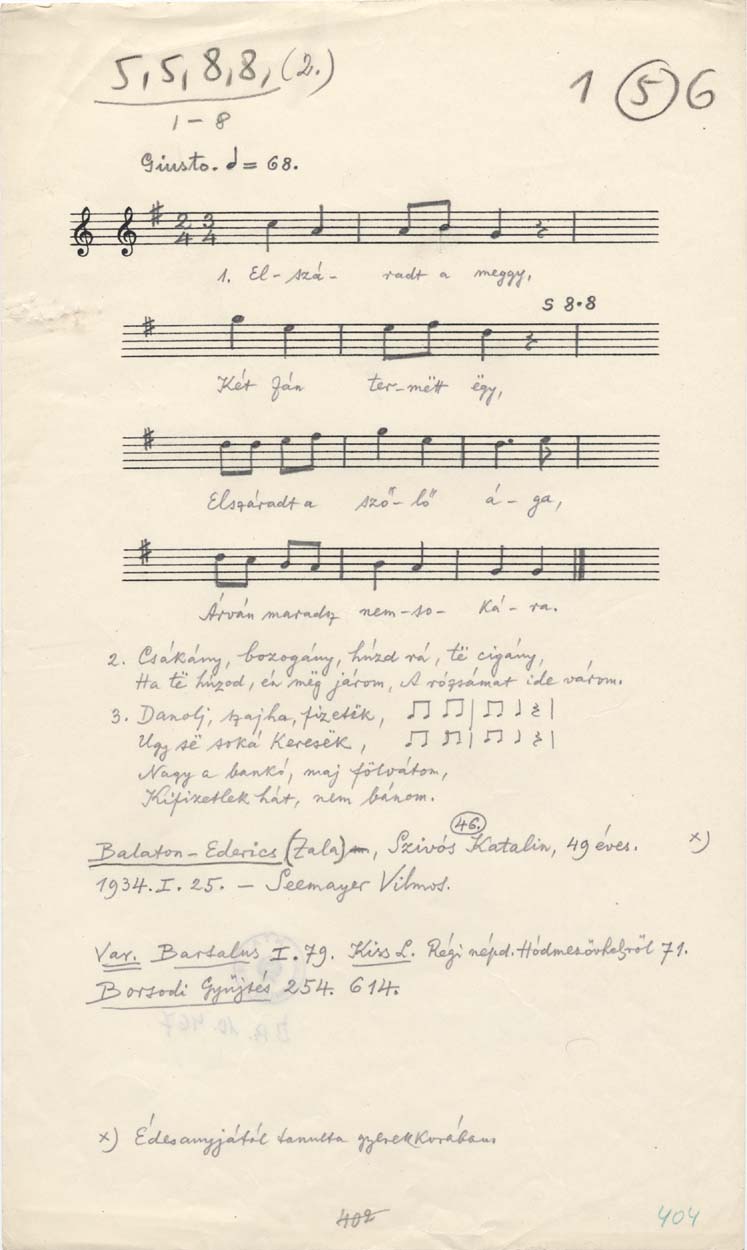 5, 5, 8, 8, (2.)
1 5 6
1-8
Giusto. = 68.
2 3
4 4
1. El-szá-radt a meggy,
S 8.8
Két fán ter-mëtt ëgy,
Elszáradt a sző-lő á-ga,
Árván maradsz nem-so-ká-ra.
2. Csákány, bozogány, húzd rá, të cigány,
Ha të húzod, én mëg járom, A rózsámat ide várom.
3. Danolj, szajha, fizetëk,
Ugy së soká keresëk,
Nagy a bankó, maj fölvátom,
Kifizetlek hát, nem bánom.
46.
Balaton-Ederics (Zala), Szivós Katalin, 49 éves. x)
1934. I. 25. - Seemayer Vilmos.
Var. Bartalus I. 79. Kiss L. Régi népd. Hódmezővhelyről 71.
Borsodi Gyűjtés 254. 614.
x) Édesanyjától tanulta gyerekkorában
402
404